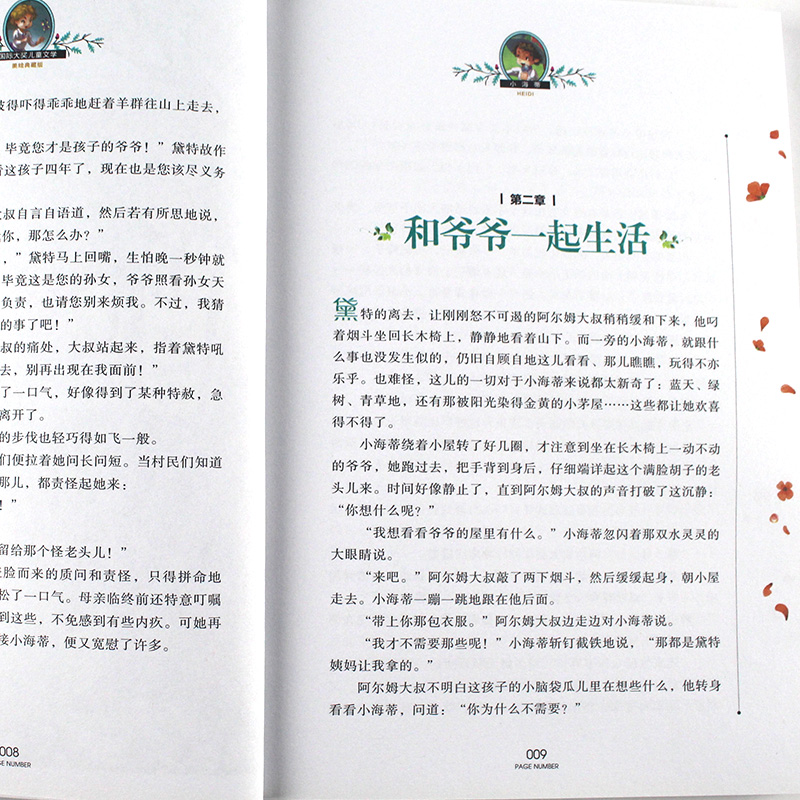 国际大奖儿童文学
美绘典藏版
彼得吓得乖乖地赶着羊群往山上走去，
毕竟您才是孩子的爷爷！”黛特故作
着这孩子四年了，现在也是您该尽义务
大叔自言自语道，然后若有所思地说，
你，那怎么办？”
，”黛特马上回嘴，生怕晚一秒钟就
毕竟这是您的孙女，爷爷照看孙女天
负责，也请您别来烦我。不过，我猜
的事了吧！”
叔的痛处，大叔站起来，指着黛特吼
去，别再出现在我面前！”
了一口气，好像得到了某种特赦，急
离开了。
的步伐也轻巧得如飞一般。
们便拉着她问长问短。当村民们知道
那儿，都责怪起她来：
！”
留给那个怪老头儿！”
脸而来的质问和责怪，只得拼命地
松了一口气。母亲临终前还特意叮嘱
到这些，不免感到有些内疚。可她再
接小海蒂，便又宽慰了许多。
008
GE NUMBER
小海蒂
HEIDI
第二章
和爷爷一起生活
黛特的离去，让刚刚怒不可遏的阿尔姆大叔稍稍缓和下来，他叼
着烟斗坐回长木椅上，静静地看着山下。而一旁的小海蒂，就跟什
么事也没发生似的，仍旧自顾自地这儿看看、那儿瞧瞧，玩得不亦
乐乎。也难怪，这儿的一切对于小海蒂来说都太新奇了：蓝天、绿
树、青草地，还有那被阳光染得金黄的小茅屋……这些都让她欢喜
得不得了。
小海蒂绕着小屋转了好几圈，才注意到坐在长木椅上一动不动
的爷爷，她跑过去，把手背到身后，仔细端详起这个满脸胡子的老
头儿来。时间好像静止了，直到阿尔姆大叔的声音打破了这沉静：
“你想什么呢？”
“我想看看爷爷的屋里有什么。”小海蒂忽闪着那双水灵灵的
大眼睛说。
“来吧。”阿尔姆大叔敲了两下烟斗，然后缓缓起身，朝小屋
走去。小海蒂一蹦一跳地跟在他后面。
“带上你那包衣服。”阿尔姆大叔边走边对小海蒂说。
“我才不需要那些呢！”小海蒂斩钉截铁地说，“那都是黛特
姨妈让我拿的。”
阿尔姆大叔不明白这孩子的小脑袋瓜儿里在想些什么，他转身
看看小海蒂，问道：“你为什么不需要？”
009
PAGE NUMBER